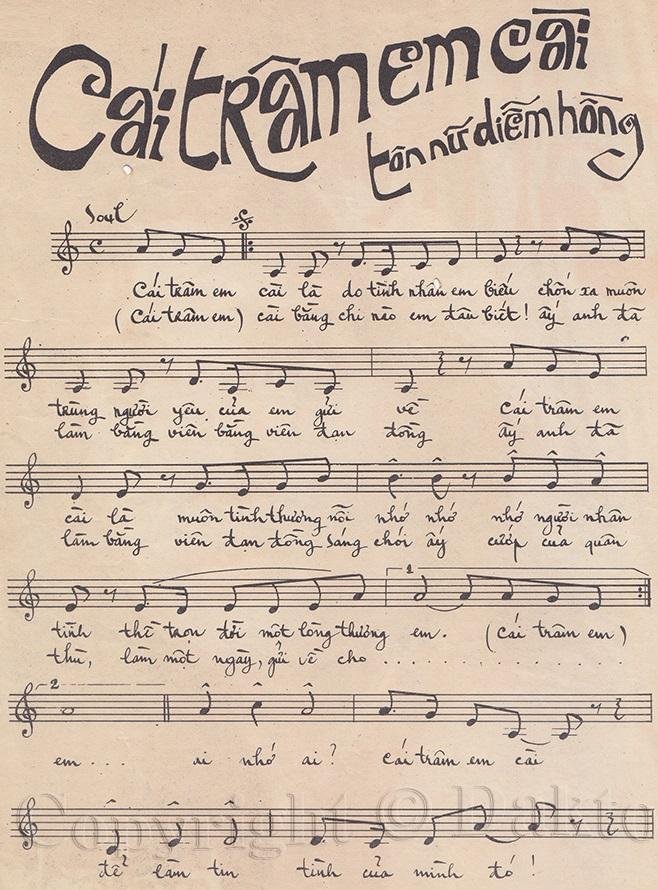 Cái trâm em cài
tôn nữ diễm hồng
Soul
Cái trâm em cài là do tình nhân em biếu chốn xa muôn
(Cái trâm em) cài bằng chi nào em đâu biết! ấy anh đã
trùng người yêu của em gửi về Cái trâm em
làm bằng viên bằng viên đạn đồng ấy anh đã
cài là muôn tình thương nồi nhớ nhớ nhớ người nhân
làm bằng viên đạn đồng sáng chói ấy cướp của quân
tình thề trọn đời một lòng thương em. (Cái trâm em)
thù, làm một ngày, gửi về cho . . . . . . . . . . . . .
em... ai nhớ ai? Cái trâm em cài
để làm tin tình của mình đó!
Copyright © Dakto